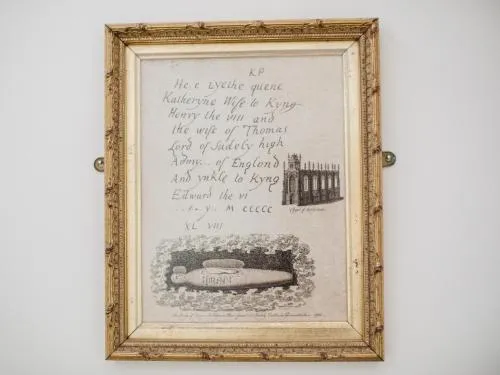 K P
He.e Lyethe quene
Katheryne Wife to Kyng
Henry the VIII and
the wife of Thomas
Lord of Sudely high
Admy... of Englond
And ynkle to Kyng
Edward the VI
..e.y.. M CCCCC
XL VIII